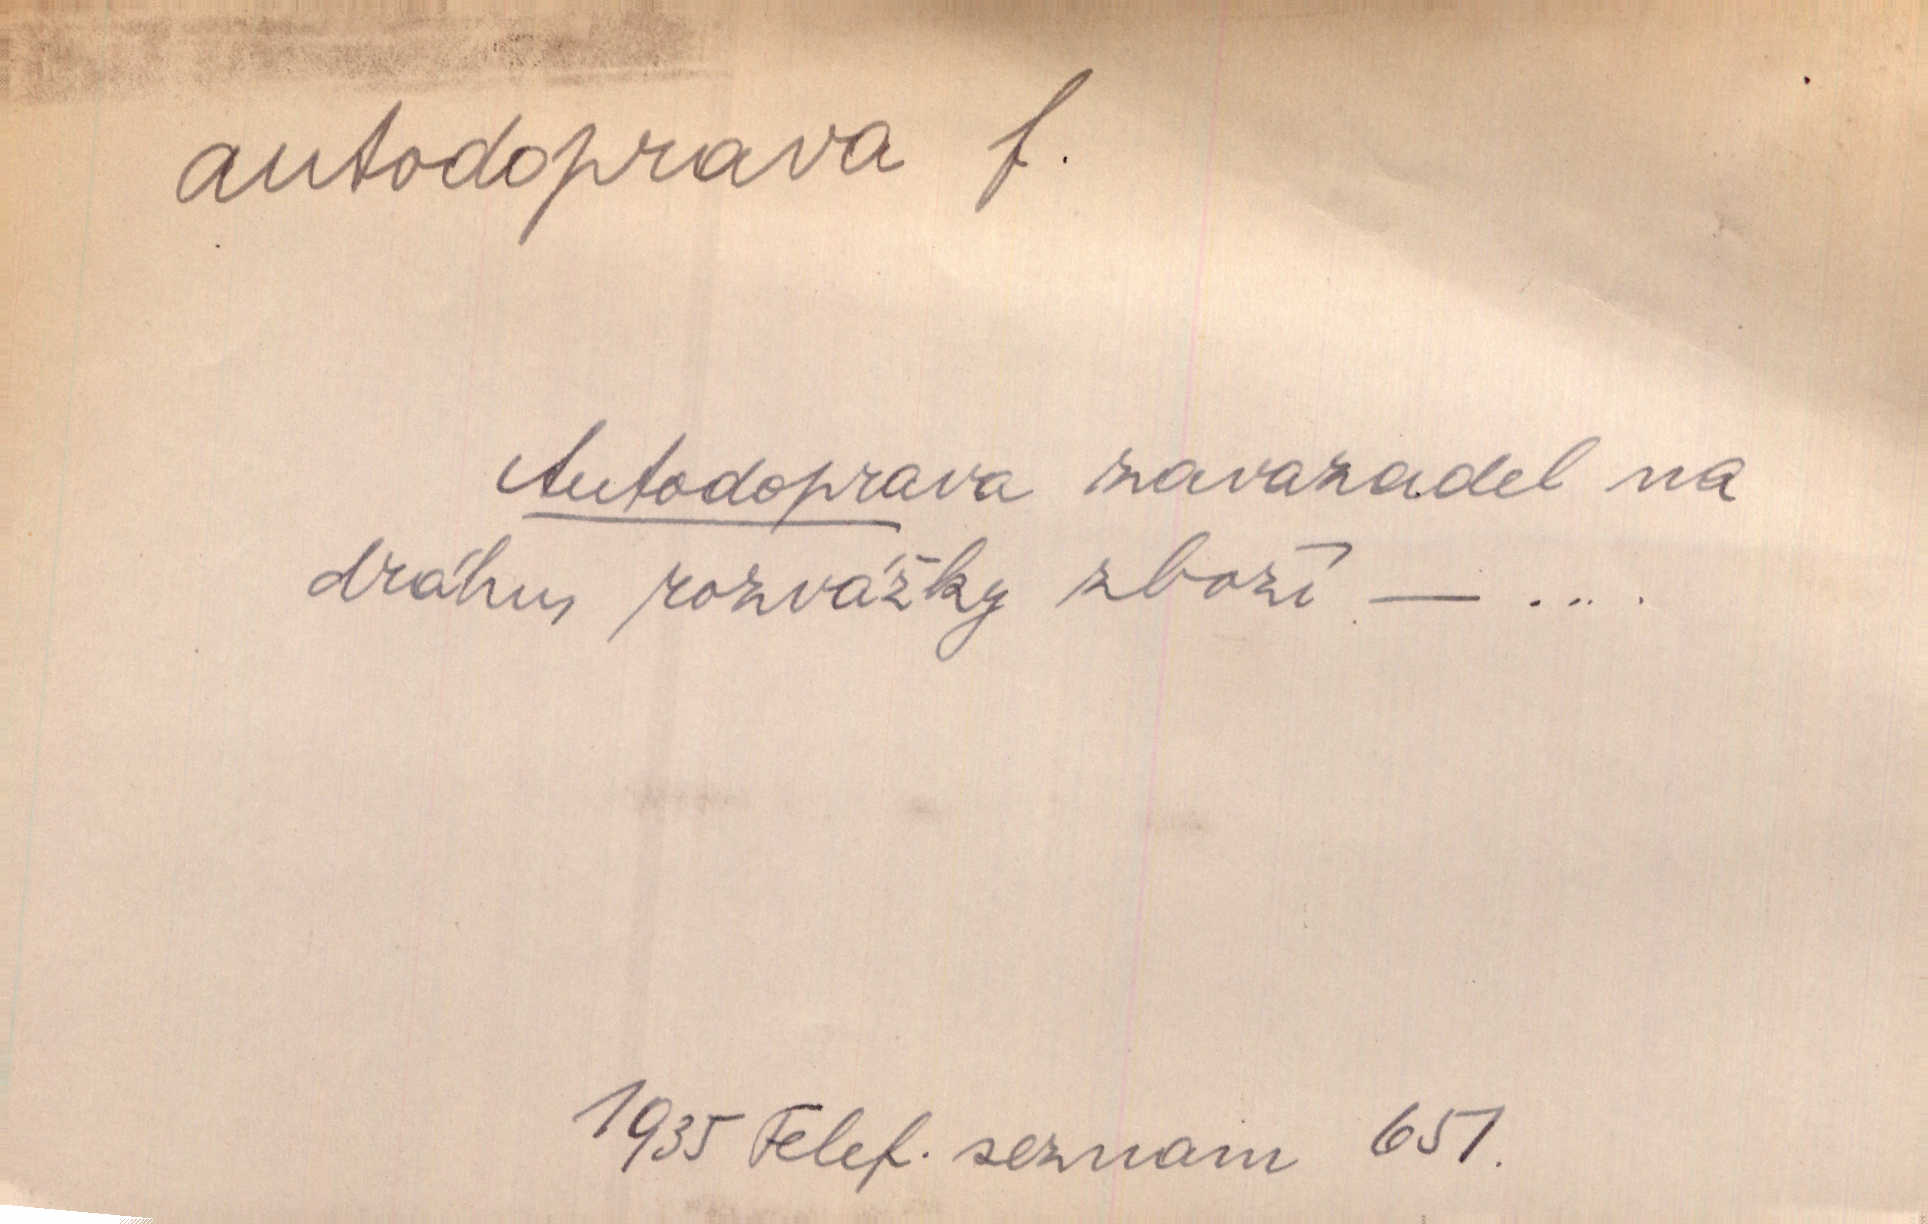 autodoprava f.
Autodoprava zavazadel na
dráhu, rozvážky zboží — ....
1935 Telef. seznam 651.